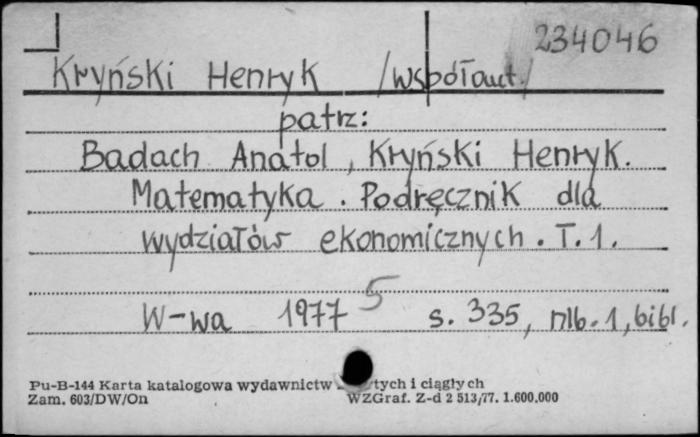 234046
Kryński Henryk /współaut./
patrz:
Badach Anatol, Kryński Henryk.
Matematyka. Podręcznik dla
wydziałów ekonomicznych. T.1.
5
W-wa 1977 s. 335, nlb. 1, bibl.
Pu-B-144 Karta katalogowa wydawnictw tych i ciągłych
Zam. 603/DW/On WZGraf. Z-d 2 513/77. 1.600.000